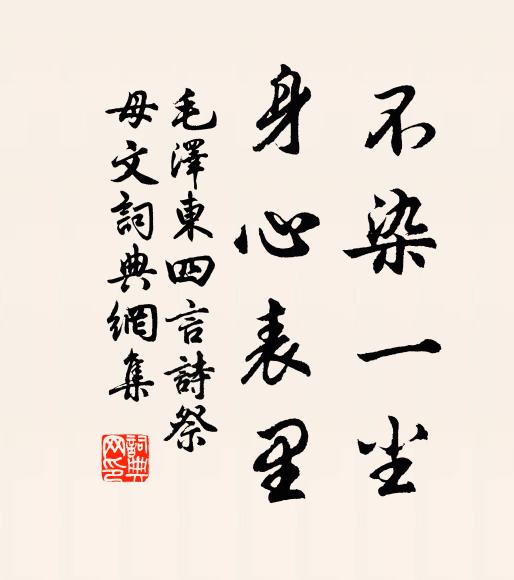 不染一尘
身心表里
毛澤東四言詩祭
母文詞典網集
詞典
网印